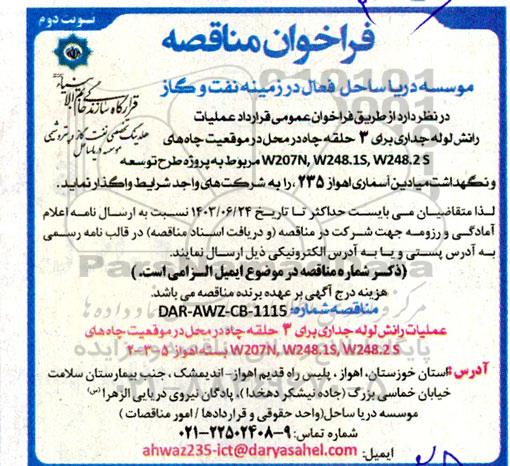 نوبت دوم
فراخوان مناقصه
قرارگاه سازندگی خاتم الانبیاء
هلدینگ تخصصی نفت، گاز و پتروشیمی
موسسه دریا ساحل
موسسه دریا ساحل فعال در زمینه نفت و گاز
در نظر دارد از طریق فراخوان عمومی قرارداد عملیات
رانش لوله جداری برای ۳ حلقه چاه در محل در موقعیت چاه های
W207N, W248.1S, W248.2 S مربوط به پروژه طرح توسعه
و نگهداشت میادین آسماری اهواز ۲۳۵ ، را به شرکت های واجد شرایط واگذار نماید.
لذا متقاضیان می بایست حداکثر تا تاریخ ۱۴۰۳/۰۶/۲۴ نسبت به ارسال نامه اعلام
آمادگی و رزومه جهت شرکت در مناقصه (و دریافت اسناد مناقصه) در قالب نامه رسمی
به آدرس پستی و یا به آدرس الکترونیکی ذیل ارسال نمایند.
(ذکر شماره مناقصه در موضوع ایمیل الزامی است. )
هزینه درج آگهی بر عهده برنده مناقصه می باشد.
مناقصه شماره: DAR-AWZ-CB-1115
عملیات رانش لوله جداری برای ۳ حلقه چاه در محل در موقعیت چاه های
W207N, W248.1S, W248.2 S بسته اهواز ۵-۳-۲
آدرس : استان خوزستان، اهواز ، پلیس راه قدیم اهواز- اندیمشک ، جنب بیمارستان سلامت
خیابان خماسی بزرگ (جاده نیشکر دهخدا)، پادگان نیروی دریایی الزهرا (س)
موسسه دریا ساحل(واحد حقوقی و قراردادها / امور مناقصات )
شماره تماس: ۹-۲۲۵۰۲۴۰۸-۰۲۱
ایمیل: ahwaz235-ict@daryasahel.com